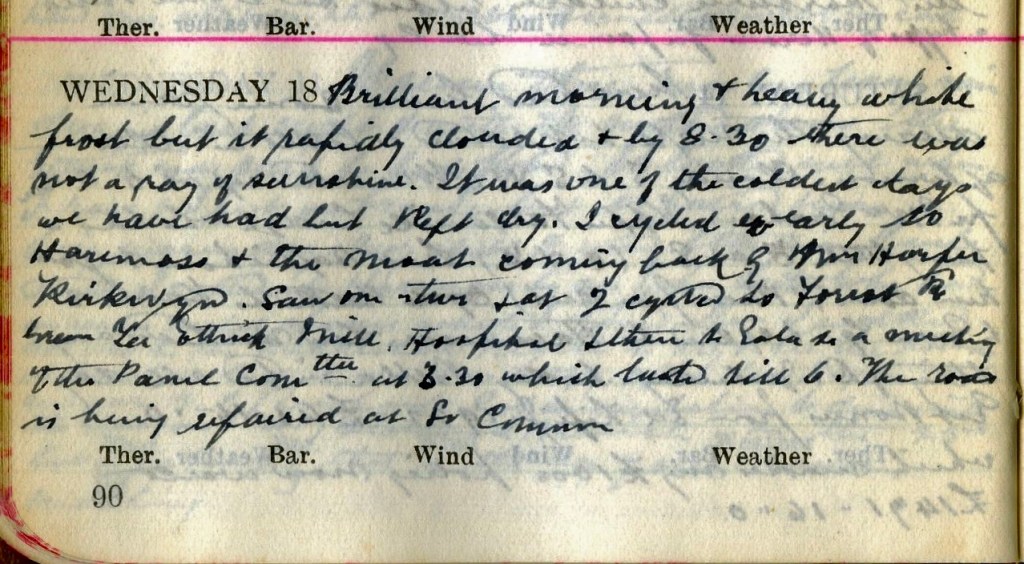 Ther. Bar. Wind Weather
WEDNESDAY 18 Brilliant morning & heavy white
frost but it rapidly clouded & by 8.30 there was
not a ray of sunshine. It was one of the coldest days
we have had but kept dry. I cycled early to
Haremoss & the Moat coming back by Harper
Kirkwynd. Saw one or two & at 2 cycled to Forest Rd
Ettrick Mill, Hospital & then to Gala to a meeting
of the Panel Comttee at 3.30 which lasted till 6. The road
is being repaired at So Common
Ther. Bar. Wind Weather
90